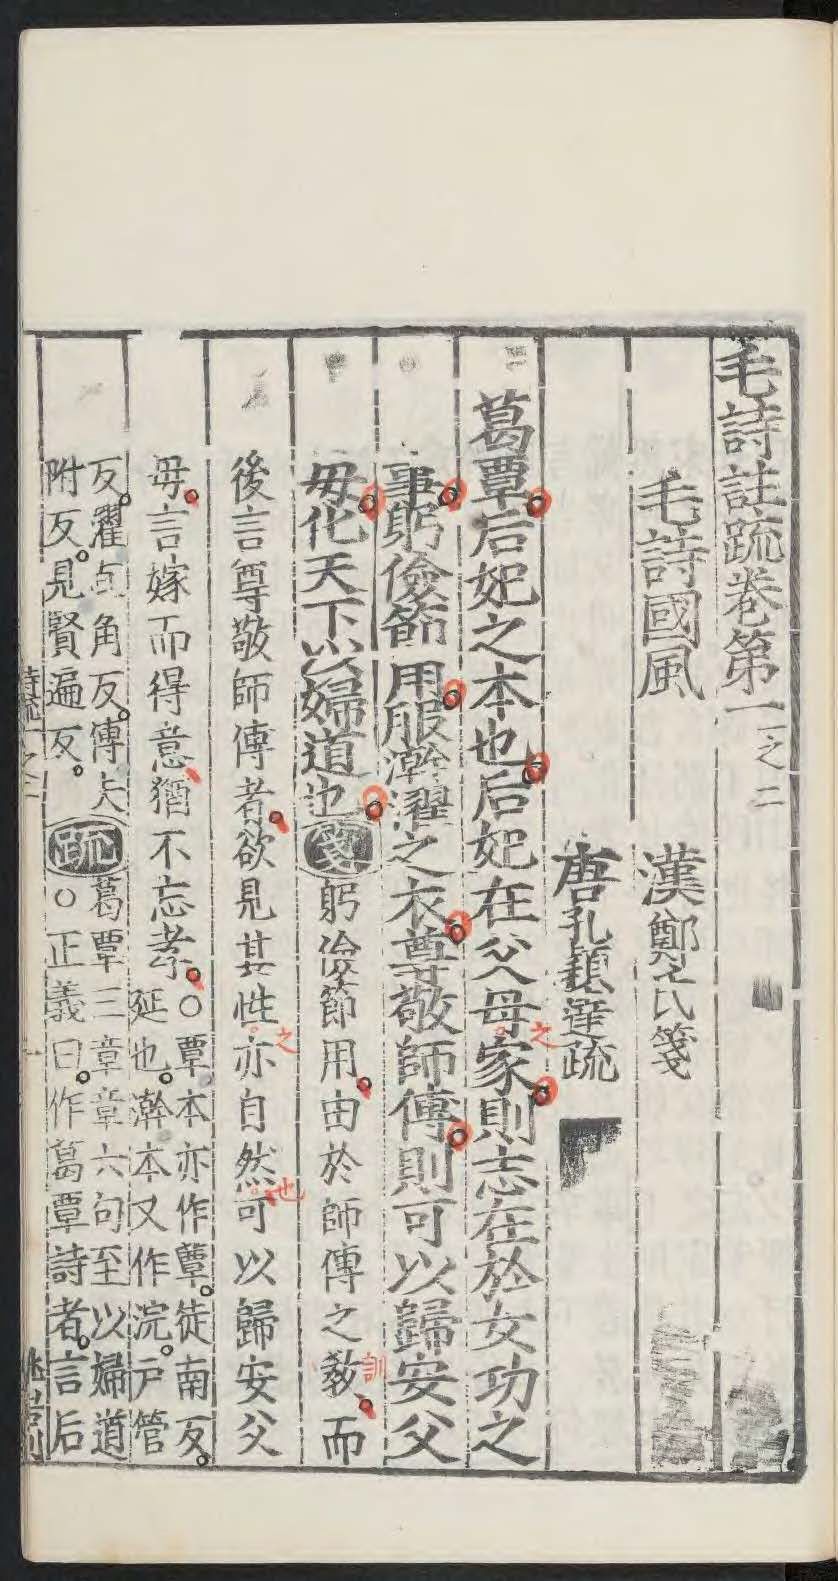 毛詩註疏卷第一之二
毛詩國風
漢鄭氏箋
唐孔穎達疏
葛覃后妃之本也后妃在父母家則志在於女功之
事躬儉節用服澣濯之衣尊敬師傅則可以歸安父
母化天下以婦道也箋躬儉節用由於師傅之教而
後言尊敬師傅者欲見其性亦自然可以歸安父
母言嫁而得意猶不忘孝
○覃本亦作蕈徒南反
延也澣本又作浣戶管
反濯直角反傅夫
附反見賢遍反
疏
葛覃三章章六句至以婦道
○正義曰作葛覃詩者言后
之
也
訓
詩疏一之二